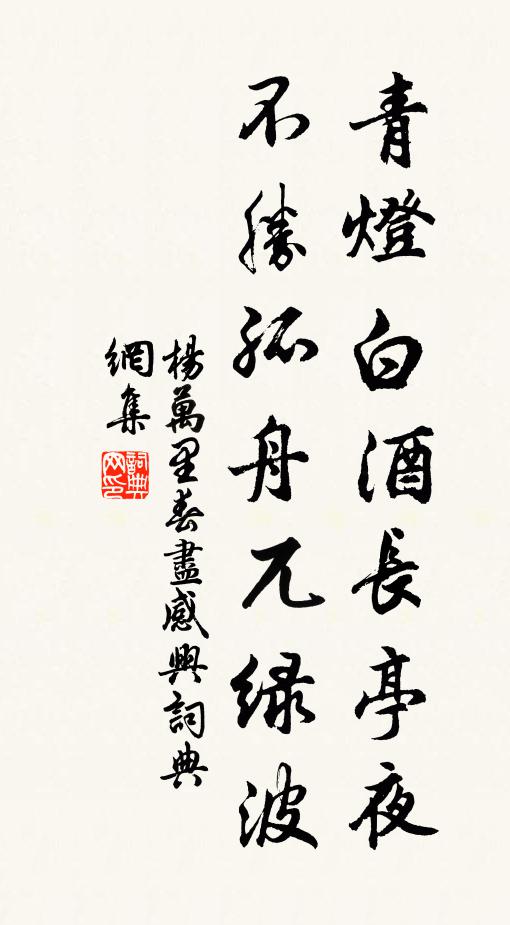 青燈白酒長亭夜
不勝孤舟兀綠波
楊萬里春盡感興詞典
網集
詞典網印